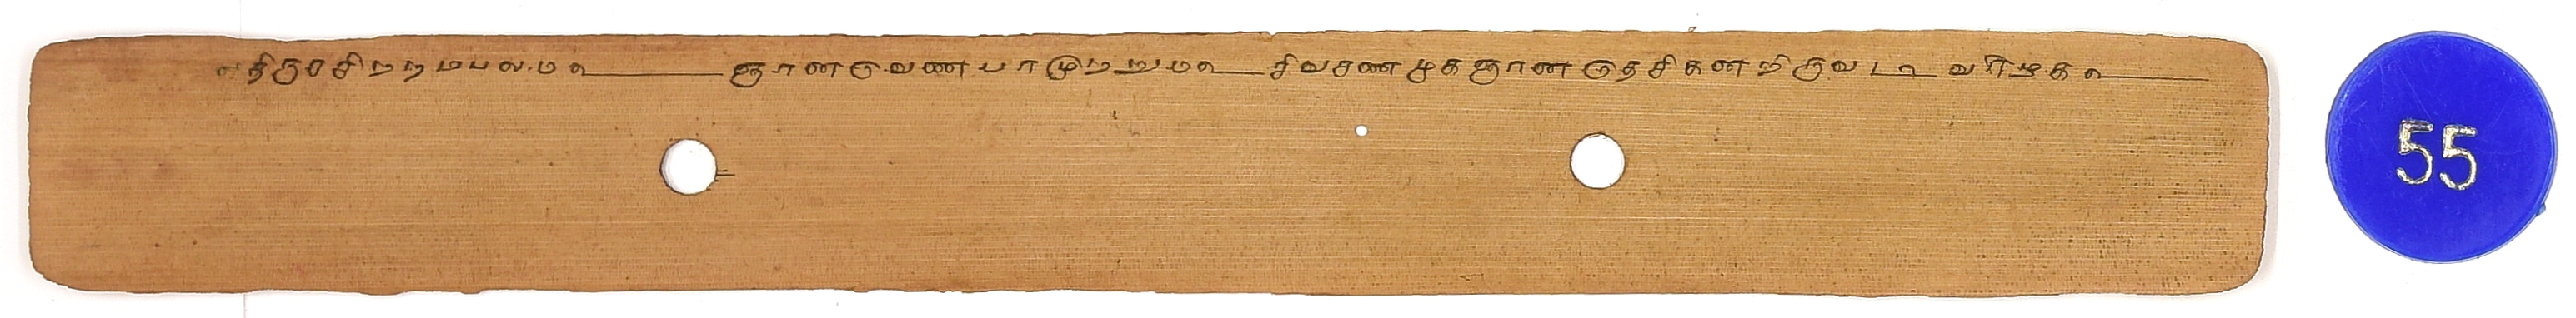 திருசசிறறமபலமஉ ஞானவெணபாமுறறுமஉ சிவசணமுகஞானதெசிகனறிருவடி வாழகஉ
55